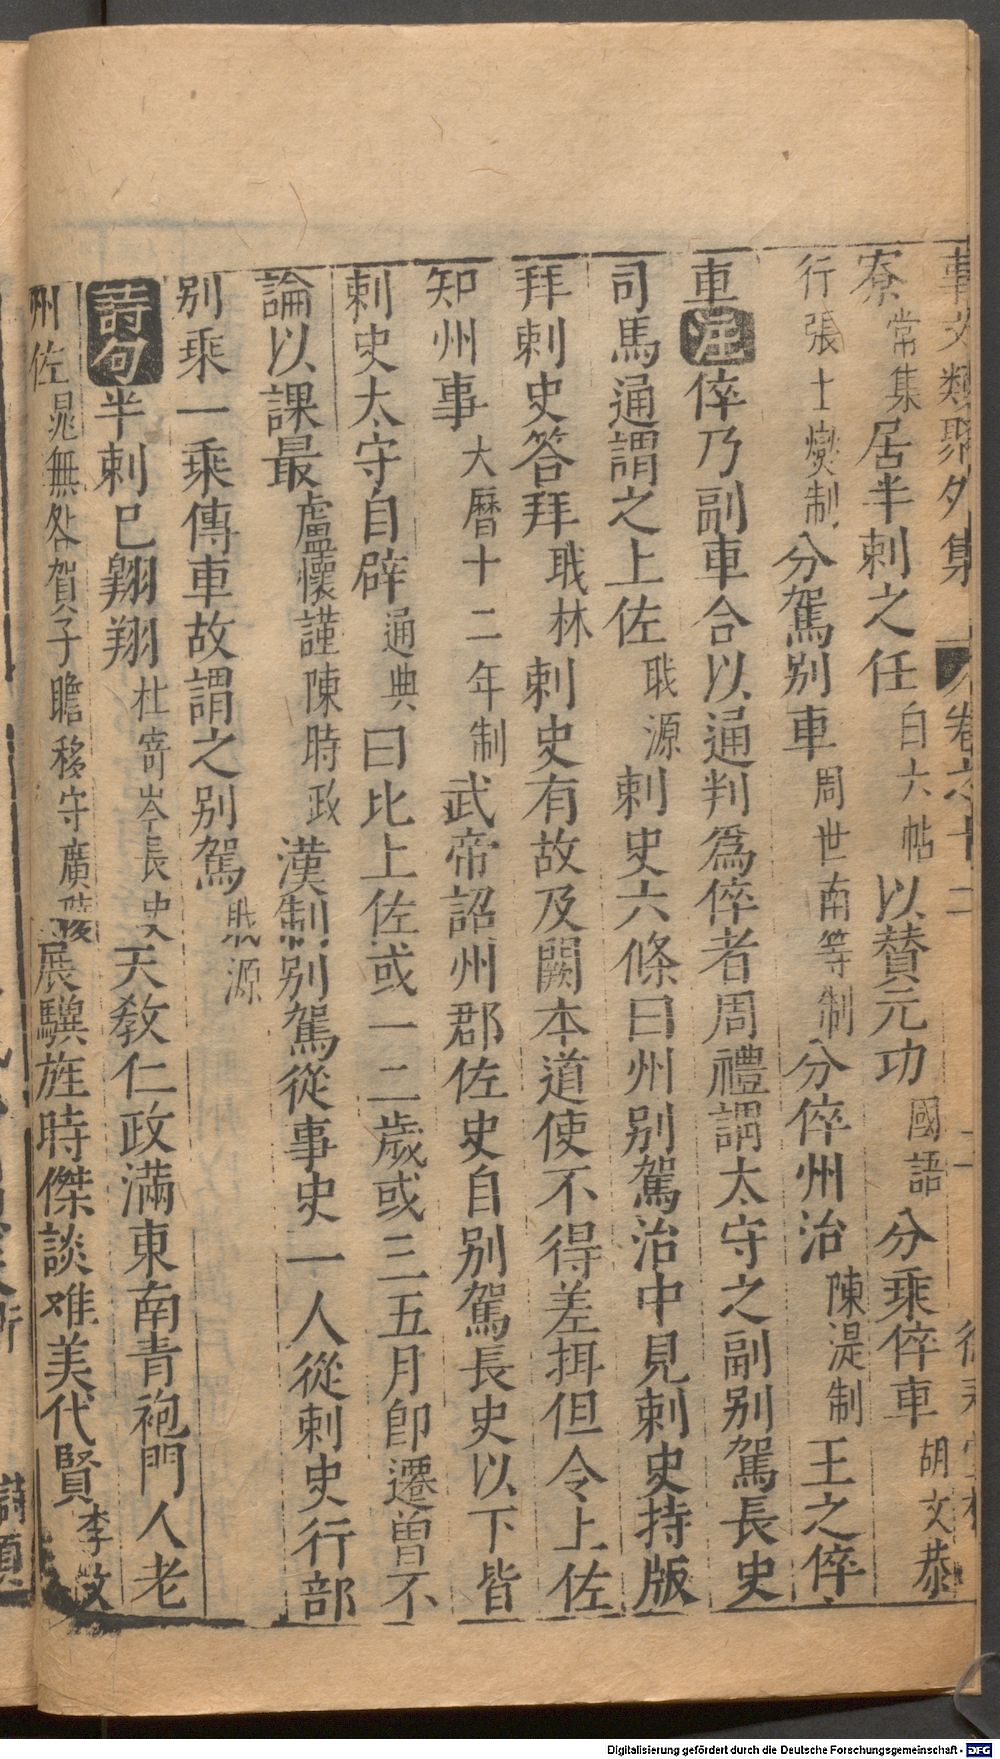 事文類聚外集 卷之十二 二
寮常集居半刺之任白六帖以贊元功國語分乘倅車胡文恭
行張士爕制分駕別車周世南等制分倅州治陳湜制王之倅
車注倅乃副車合以通判爲倅者周禮謂太守之副別駕長史
司馬通謂之上佐職源刺史六條曰州別駕治中見刺史持版
拜刺史答拜職林刺史有故及闕本道使不得差揖但令上佐
知州事大曆十二年制武帝詔州郡佐史自別駕長史以下皆
刺史太守自辟通典曰比上佐或一二歲或三五月卽遷曾不
論以課最盧懷謹陳時政漢制別駕從事史一人從刺史行部
別乘一乘傳車故謂之別駕職源
詩句半刺已翱翔杜寄岑長史天敎仁政滿東南靑袍門人老
州佐晁無咎賀子瞻移守廣陵展驥旌時傑談难美代賢李
Digitalisierung gefördert durch die Deutsche Forschungsgemeinschaft - DFG